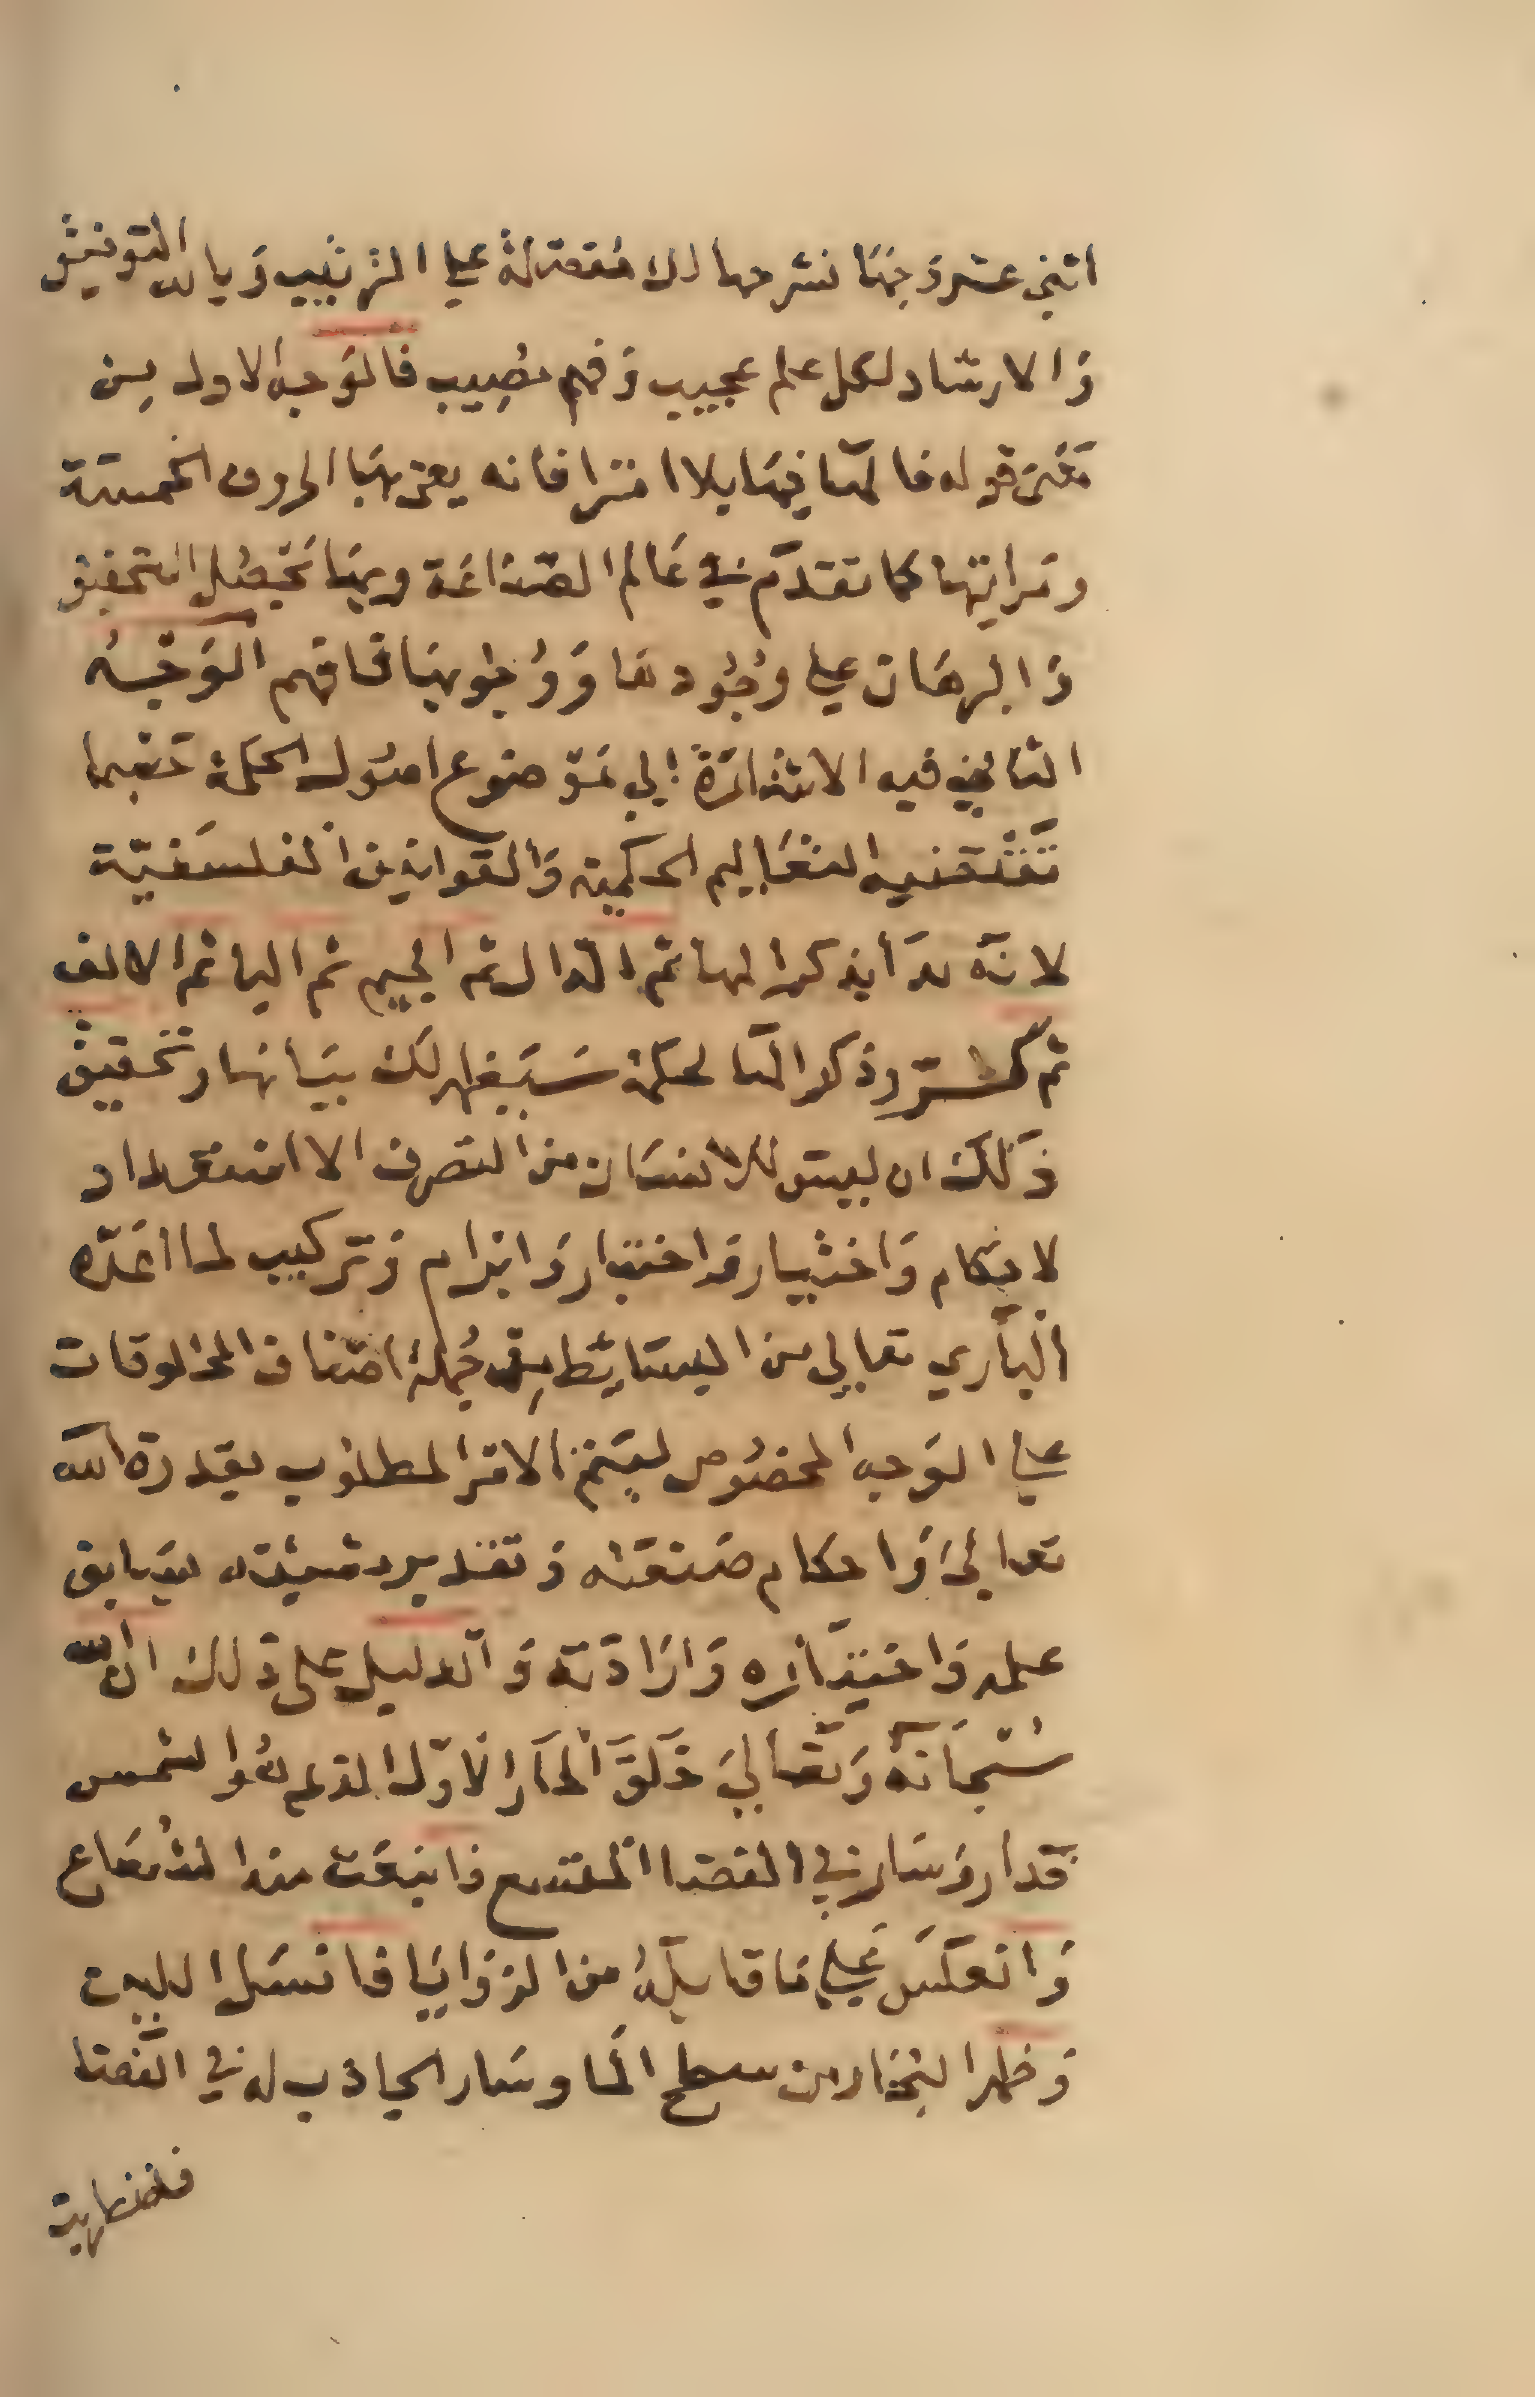 اثني عشر وجها نشرحها لك مفصلة علي الترتيب وبالله التوفيق
والارشاد لكل علم عجيب وفهم مصيب فالوجه الاول من
معنى قوله فالها فيها بلا امترا فانه يعني بها الحروف الخمسة
ومراتبها كما تقدم في عالم الصناعة وبها تحصل التحقيق
والبرهان علي وجودها ووجوبها فافهم الوجه
الثاني فيه الاشارة الي موضوع اصول الحكمة حسبما
تقتضيه التعاليم الحكمية والقوانين الفلسفية
لانه بدأ بذكر الها ثم الدال ثم الجيم ثم البا ثم الالف
ثم كرر ذكر الها لحكمة سيظهر لك بيانها وتحقيق
ذلك ان ليس للانسان من التصرف الا استعداد
لاحكام واختيار واختبار وابرام وتركيب لما اعده
الباري تعالي من البسائط من جملة اصناف المخلوقات
علي الوجه المخصوص ليتم الامر المطلوب بقدرة الله
تعالى واحكام صنعته وتقدير مشيئته بسابق
علمه واختياره وارادته والدليل على ذلك ان الله
سبحانه وتعالي خلق الحار الاول الذي هو الشمس
فدار وسار في الفضا المتسع فانبعث منه الشعاع
وانعكس علي ما قابله من الزوايا فانسل
وظهر البخار من سطح الما وسار الجاذب له في الفضا